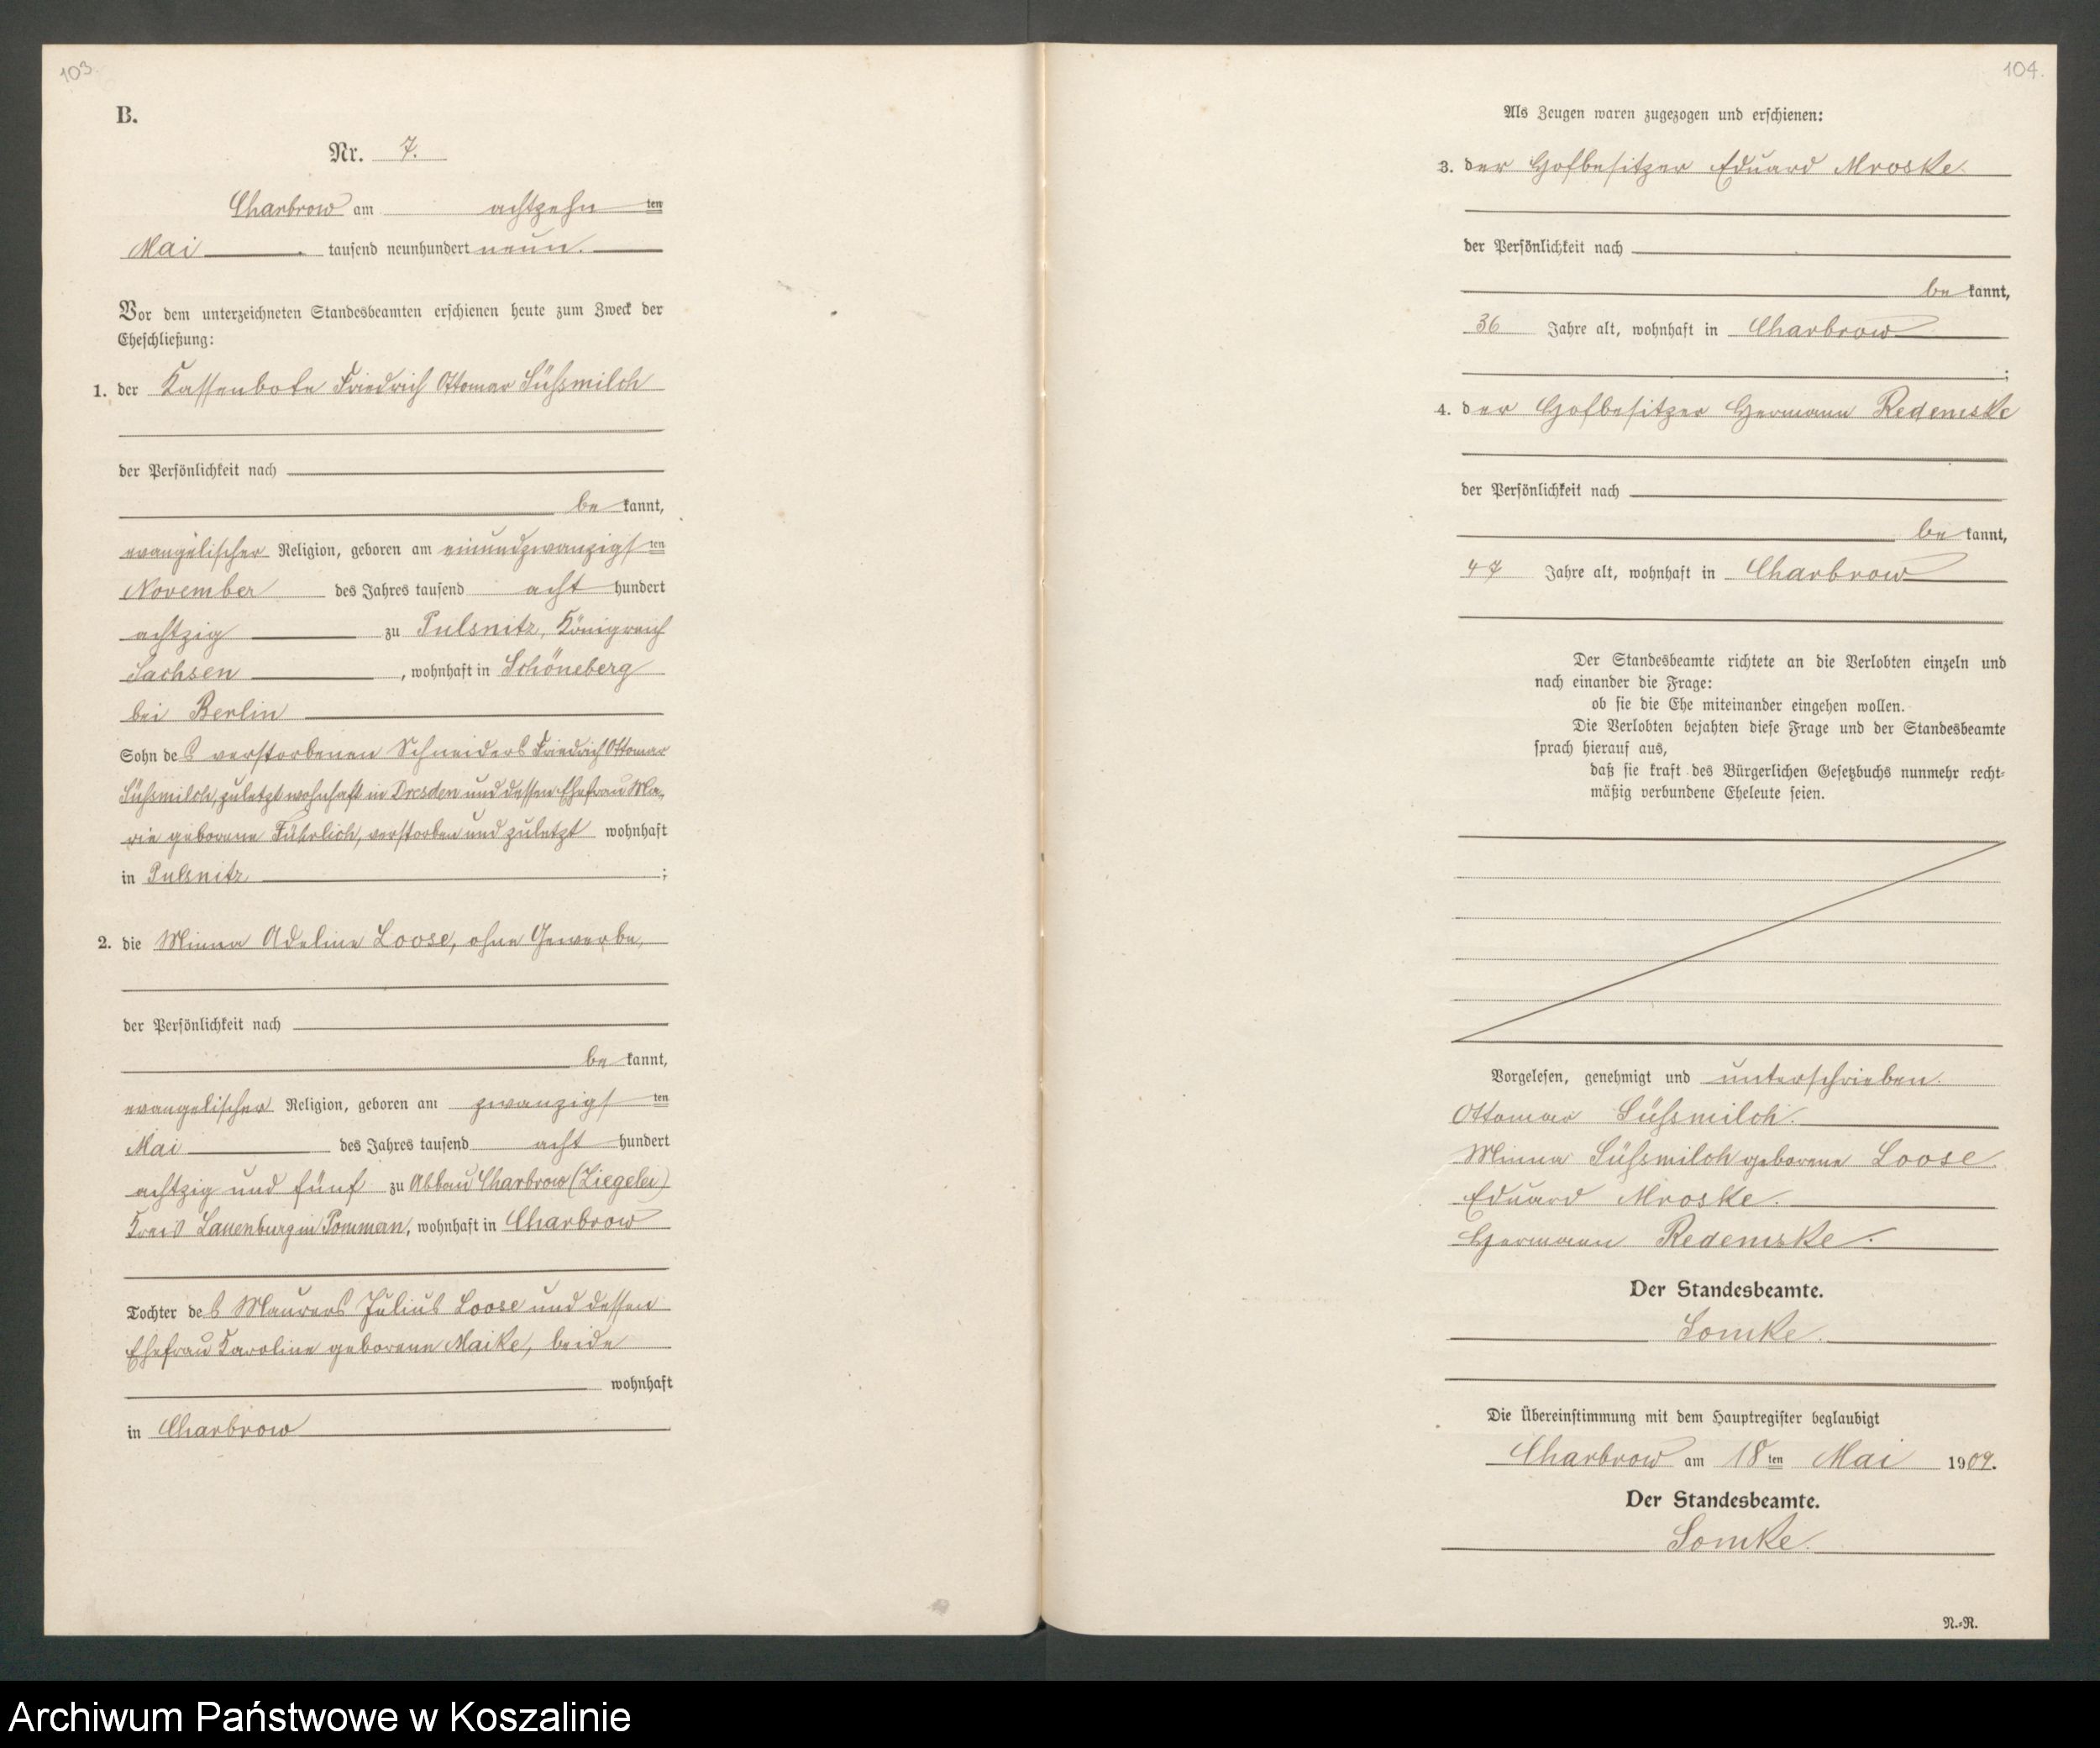 103.
B.
Nr. 7.
Charbrow am achtzehn ten
Mai tausend neunhundert neun.
Vor dem unterzeichneten Standesbeamten erschienen heute zum Zweck der
Eheschließung:
1. der Kassenbote Friedrich Ottomar Süßmilch
der Persönlichkeit nach
be kannt,
evangelischer Religion, geboren am einundzwanzigsten
November des Jahres tausend acht hundert
achtzig zu Pulsnitz, Königreich
Sachsen, wohnhaft in Schöneberg
bei Berlin
Sohn des verstorbenen Schneiders Friedrich Ottomar
Süßmilch, zuletzt wohnhaft in Dresden und dessen Ehefrau Ma-
rie geborene Führlich, verstorben und zuletzt wohnhaft
in Pulsnitz;
2. die Minna Adeline Loose, ohne Gewerbe,
der Persönlichkeit nach
be kannt,
evangelischer Religion, geboren am zwanzigsten
Mai des Jahres tausend acht hundert
achtzig und fünf zu Abbau Charbrow (Ziegelei)
Kreis Lauenburg in Pommern, wohnhaft in Charbrow
Tochter des Maurers Julius Loose und dessen
Ehefrau Karoline geborene Maike, beide
wohnhaft
in Charbrow
104.
Als Zeugen waren zugezogen und erschienen:
3. der Hofbesitzer Eduard Mroske
der Persönlichkeit nach
be kannt,
36 Jahre alt, wohnhaft in Charbrow
;
4. der Hofbesitzer Hermann Redemske
der Persönlichkeit nach
be kannt,
47 Jahre alt, wohnhaft in Charbrow
Der Standesbeamte richtete an die Verlobten einzeln und
nach einander die Frage:
ob sie die Ehe miteinander eingehen wollen.
Die Verlobten bejahten diese Frage und der Standesbeamte
sprach hierauf aus,
daß sie kraft des Bürgerlichen Gesetzbuchs nunmehr recht-
mäßig verbundene Eheleute seien.
Vorgelesen, genehmigt und unterschrieben.
Ottomar Süßmilch.
Minna Süßmilch geborene Loose
Eduard Mroske.
Hermann Redemske.
Der Standesbeamte.
Lomke.
Die Übereinstimmung mit dem Hauptregister beglaubigt
Charbrow am 18 ten Mai 1909.
Der Standesbeamte.
Lomke.
N.-R.
Archiwum Państwowe w Koszalinie